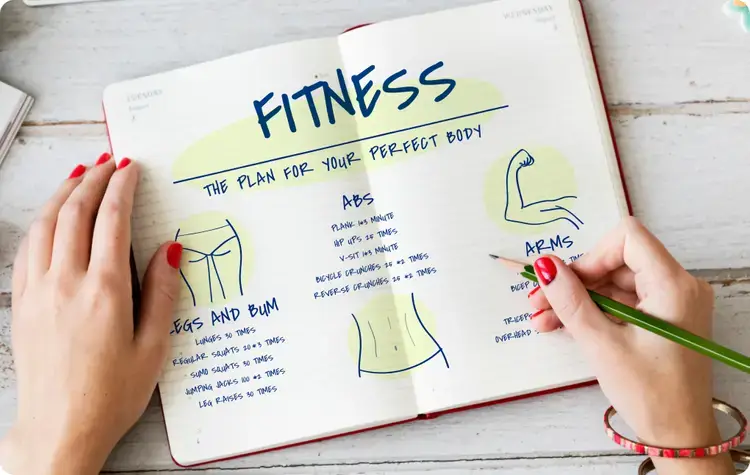 FITNESS
THE PLAN FOR YOUR PERFECT BODY
LEGS AND BUM
LUNGES 30 TIMES
REGULAR SQUATS 20 *3 TIMES
SUMO SQUATS 30 TIMES
JUMPING JACKS 100 *2 TIMES
LEG RAISES 30 TIMES
ABS
PLANK 1*3 MINUTE
HIP UPS 25 TIMES
V-SIT 1*3 MINUTE
BICYCLE CRUNCHES 25 *2 TIMES
REVERSE CRUNCHES 25 *2 TIMES
ARMS
BICEP
TRICEPS
OVERHEAD